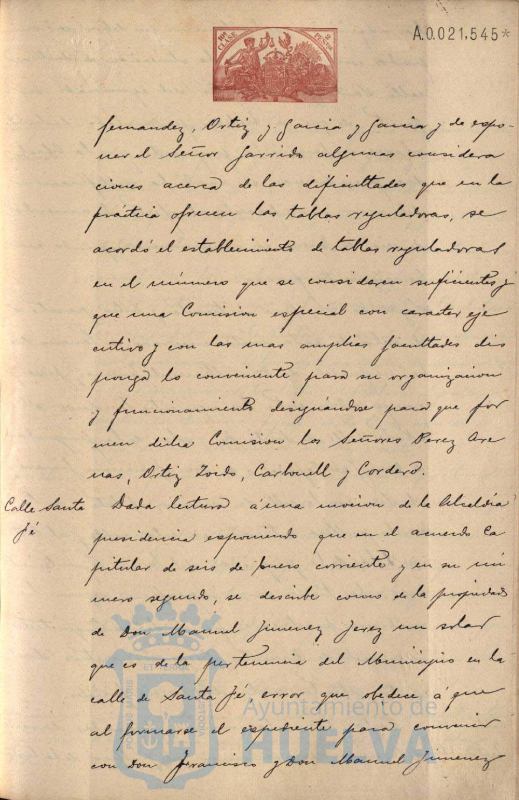 10ª CLASE 2 PESETAS
A.0.021,545*
fernandez, Ortiz y Garcia y Garcia y de expo-
ner el Señor Garrido algunas considera
ciones acerca de las dificultades que en la
práctica ofrecen las tablas reguladoras, se
acordó el establecimiento de tablas reguladoras
en el número que se consideren suficientes y
que una Comision especial con caracter eje
cutivo y con las mas amplias facultades dis
ponga lo conveniente para su organizacion
y funcionamiento designándose para que for
men dicha Comision los Señores Perez Are
nas, Ortiz Toido, Carbonell y Cordero.
Calle Santa
Fé
Dada lectura á una mocion de la Alcaldía
presidencia exponiendo que en el acuerdo ca
pitular de seis de Enero corriente y en su nú
mero segundo, se describe como de la propiedad
de Don Manuel Jimenez Jerez un solar
que es de la pertenencia del Municipio en la
calle de Santa Fé, error que obedece á que
al formarse el expediente para convenir
con Don Francisco y Don Manuel Jimenez
Ayuntamiento de
HUELVA